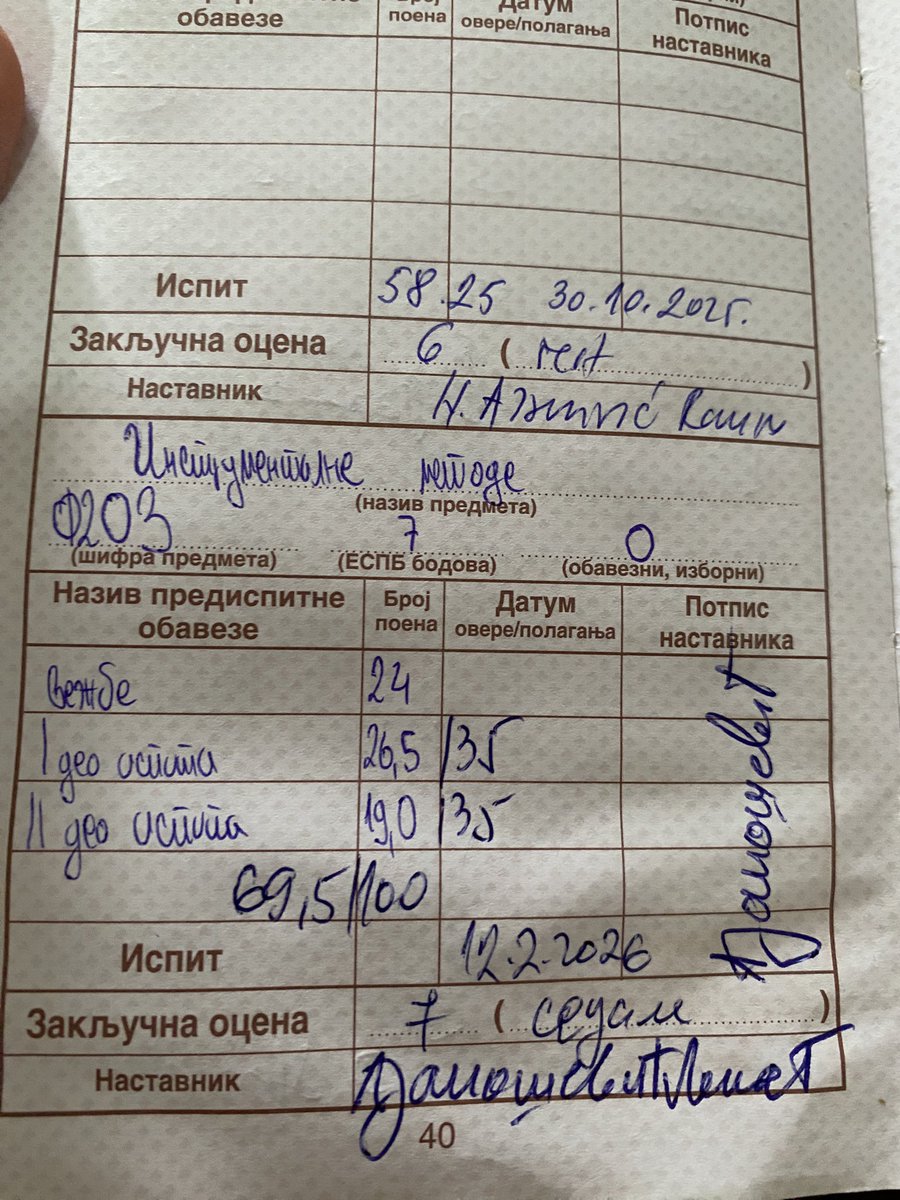 обавезе поена Датум овере/полагања Потпис наставника
Испит 58.25 30.10.202г.
Закључна оцена 6 ( )
Наставник
Инструменталне методе
(назив предмета)
Ф203 7 О
(шифра предмета) (ЕСПБ бодова) (обавезни, изборни)
Назив предиспитне обавезе Број поена Датум овере/полагања Потпис наставника
Вежбе 24
I део испита 26,5 /35
II део испита 19,0 /35
69,5/100
Испит 12.2.2026
Закључна оцена 7 ( седам )
Наставник
40